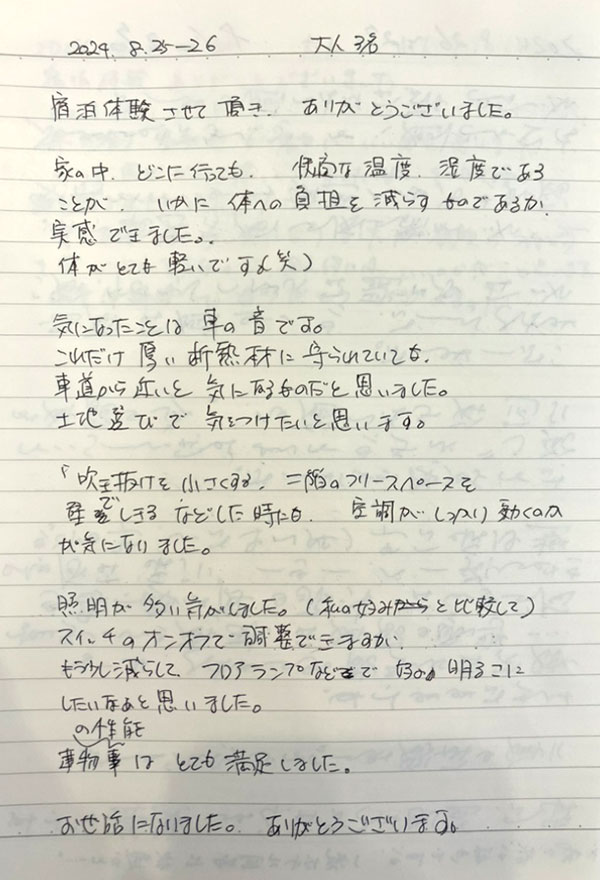 2024. 8. 25-26　大人 3名
宿泊体験させて頂き、ありがとうございました。
家の中、どこに行っても、快適な温度、湿度である
ことが、いかに体への負担を減らすものであるか、
実感できました。
体がとても軽いです(笑)
気になったことは車の音です。
これだけ厚い断熱材に守られていても、
車道から近いと気になるものだと思いました。
土地選びで気をつけたいと思います。
吹き抜けを小さくする、二階のフリースペースを
壁でしきるなどした時にも、空調がしっかり効くのか
が気になりました。
照明が多い気がしました。(私の好みと比較して)
スイッチのオンオフで調整できますが、
もう少し減らして、フロアランプなどで好みの明るさに
したいなあと思いました。
建物の性能はとても満足しました。
お世話になりました。ありがとうございます。